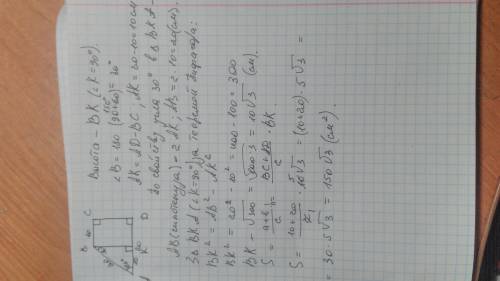 B C
10
A K D
Высота - BK (∠K=90°)
∠B = 180 - (90+60) = 30°
AK = AD-BC, AK = 20-10=10см
По свойству угла 30° в ΔBKA -
AB(гипотенуза) = 2 AK; AB = 2·10=20(см).
Из BKA (∠K=90°) за теоремой Пифагора:
BK² = AB² - AK²
BK² = 20² - 10² = 400 - 100 = 300
BK = √300 = √100·3 = 10√3 (см).
S = a+b/2 h = BC+AD/2 · BK
S = 10+20/2 · 10√3 = (10+20) · 5√3 =
= 30·5√3 = 150√3 (см²)